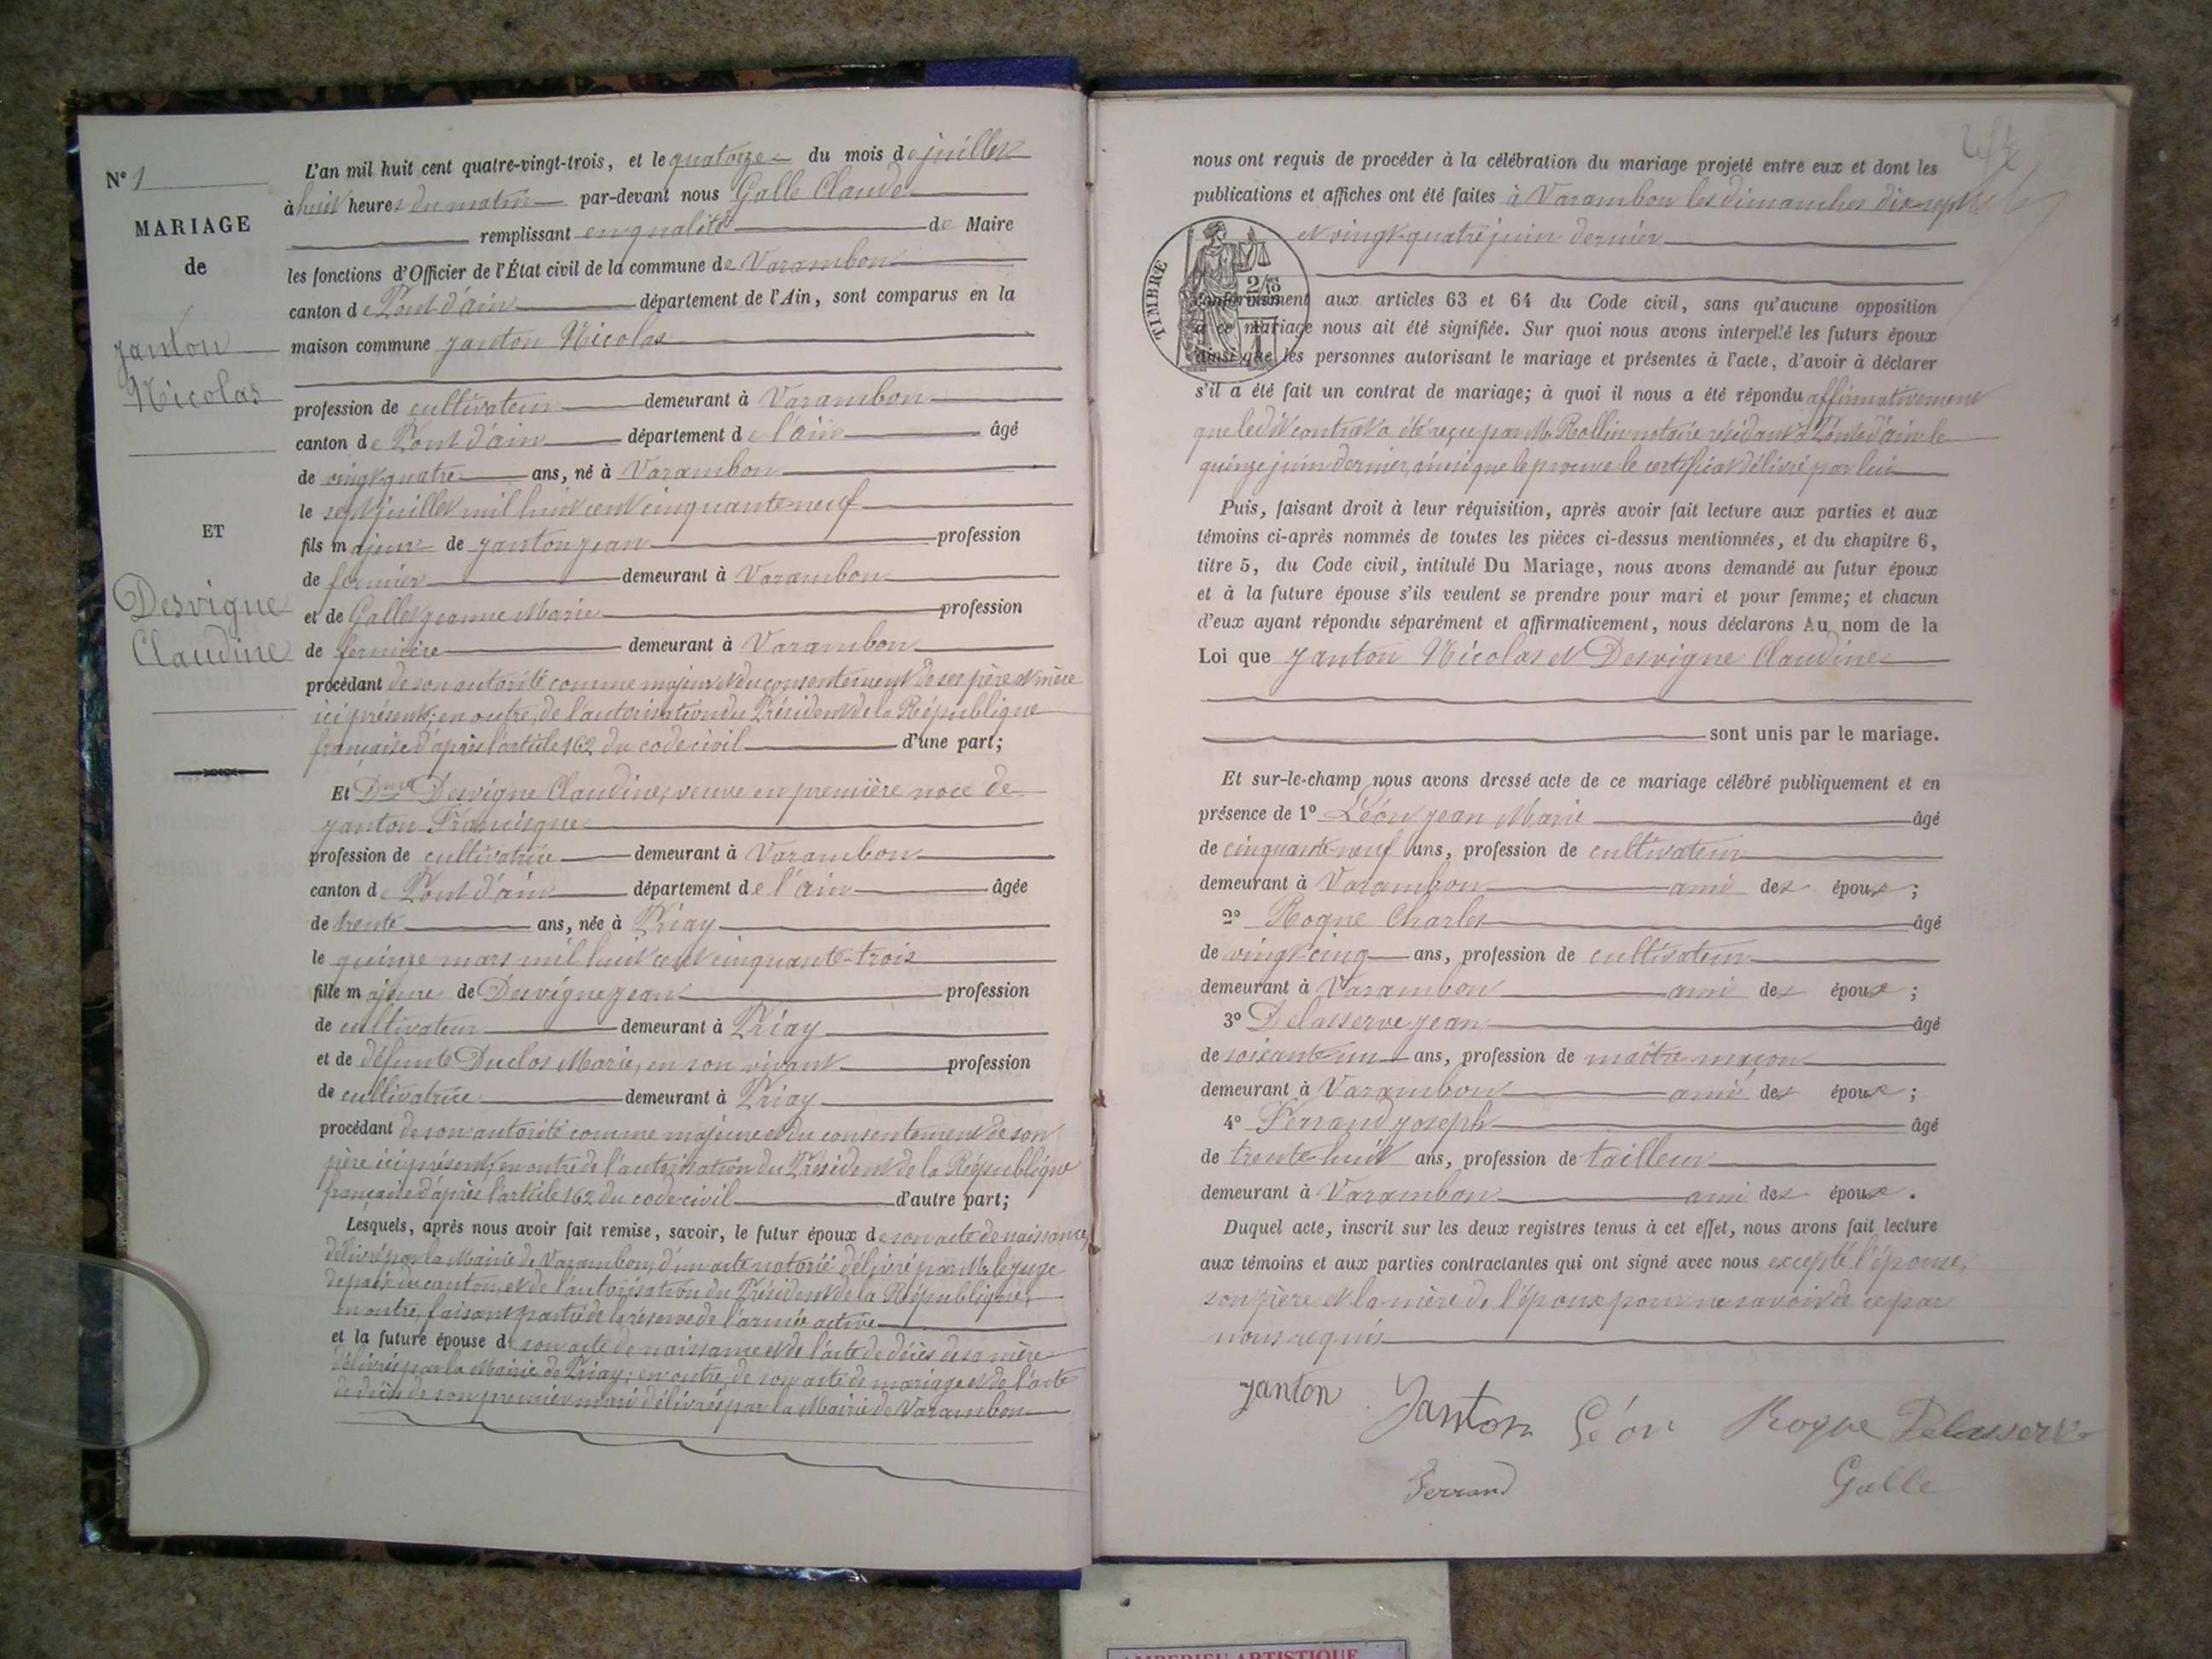 N° 1
MARIAGE
de
Janton
Nicolas
ET
Desvigne
Claudine
L'an mil huit cent quatre-vingt-trois, et le quatorze du mois de juillet
à huit heures du matin par-devant nous Galle Claude
remplissant en qualité de Maire
les fonctions d'Officier de l'État civil de la commune de Varambon
canton de Pont d'ain département de l'Ain, sont comparus en la
maison commune Janton Nicolas
profession de cultivateur demeurant à Varambon
canton de Pont d'ain département de l'ain âgé
de vingt quatre ans, né à Varambon
le sept juillet mil huit cent cinquante neuf
fils majeur de Janton Jean profession
de fermier demeurant à Varambon
et de Gallet Jeanne Marie profession
de fermière demeurant à Varambon
procédant de son autorité comme majeur et du consentement de ses père et mère
ici présents; en outre, de l'autorisation du Président de la République
française d'après l'article 162 du code civil d'une part;
Et Dme Desvigne Claudine, veuve en première noce de
Janton Francisque
profession de cultivatrice demeurant à Varambon
canton de Pont d'ain département de l'ain âgée
de trente ans, née à Priay
le quinze mars mil huit cent cinquante-trois
fille majeure de Desvigne Jean profession
de cultivateur demeurant à Priay
et de défunte Duclos Marie, en son vivant profession
de cultivatrice demeurant à Priay
procédant de son autorité comme majeure et du consentement de son
père ici présent, en outre de l'autorisation du Président de la République
française d'après l'article 162 du code civil d'autre part;
Lesquels, après nous avoir fait remise, savoir, le futur époux de son acte de naissance
délivré par la Mairie de Varambon, d'un acte notorié délivré par Mr le juge
de paix du canton, et de l'autorisation du Président de la République,
en outre, faisant partie de la réserve de l'armée active
et la future épouse de son acte de naissance et de l'acte de décès de sa mère
délivrés par la Mairie de Priay; en outre, de son acte de mariage et de l'acte
de décès de son premier mari délivrés par la Mairie de Varambon
nous ont requis de procéder à la célébration du mariage projeté entre eux et dont les
publications et affiches ont été faites à Varambon les dimanches dix-sept
et vingt-quatre juin dernier
TIMBRE
conformément aux articles 63 et 64 du Code civil, sans qu'aucune opposition
à ce mariage nous ait été signifiée. Sur quoi nous avons interpellé les futurs époux
ainsi que les personnes autorisant le mariage et présentes à l'acte, d'avoir à déclarer
s'il a été fait un contrat de mariage; à quoi il nous a été répondu affirmativement
que le dit contrat a été reçu par Mr Rollin notaire résidant à Pont d'ain le
quinze juin dernier, ainsi que le prouve le certificat délivré par lui
Puis, faisant droit à leur réquisition, après avoir fait lecture aux parties et aux
témoins ci-après nommés de toutes les pièces ci-dessus mentionnées, et du chapitre 6,
titre 5, du Code civil, intitulé Du Mariage, nous avons demandé au futur époux
et à la future épouse s'ils veulent se prendre pour mari et pour femme; et chacun
d'eux ayant répondu séparément et affirmativement, nous déclarons Au nom de la
Loi que Janton Nicolas et Desvigne Claudine
sont unis par le mariage.
Et sur-le-champ nous avons dressé acte de ce mariage célébré publiquement et en
présence de 1° Léon Jean Marie âgé
de cinquante-neuf ans, profession de cultivateur
demeurant à Varambon ami des époux;
2° Rogne Charles âgé
de vingt-cinq ans, profession de cultivateur
demeurant à Varambon ami des époux;
3° Delasserve Jean âgé
de soixante-un ans, profession de maître-maçon
demeurant à Varambon ami des époux;
4° Ferrand Joseph âgé
de trente-huit ans, profession de tailleur
demeurant à Varambon ami des époux.
Duquel acte, inscrit sur les deux registres tenus à cet effet, nous avons fait lecture
aux témoins et aux parties contractantes qui ont signé avec nous excepté l'épouse,
son père et la mère de l'époux pour ne savoir de ce par
nous requis
Janton Janton Léon Rogne Delasserve
Ferrand Galle
AMBERIEU ARTISTIQUE